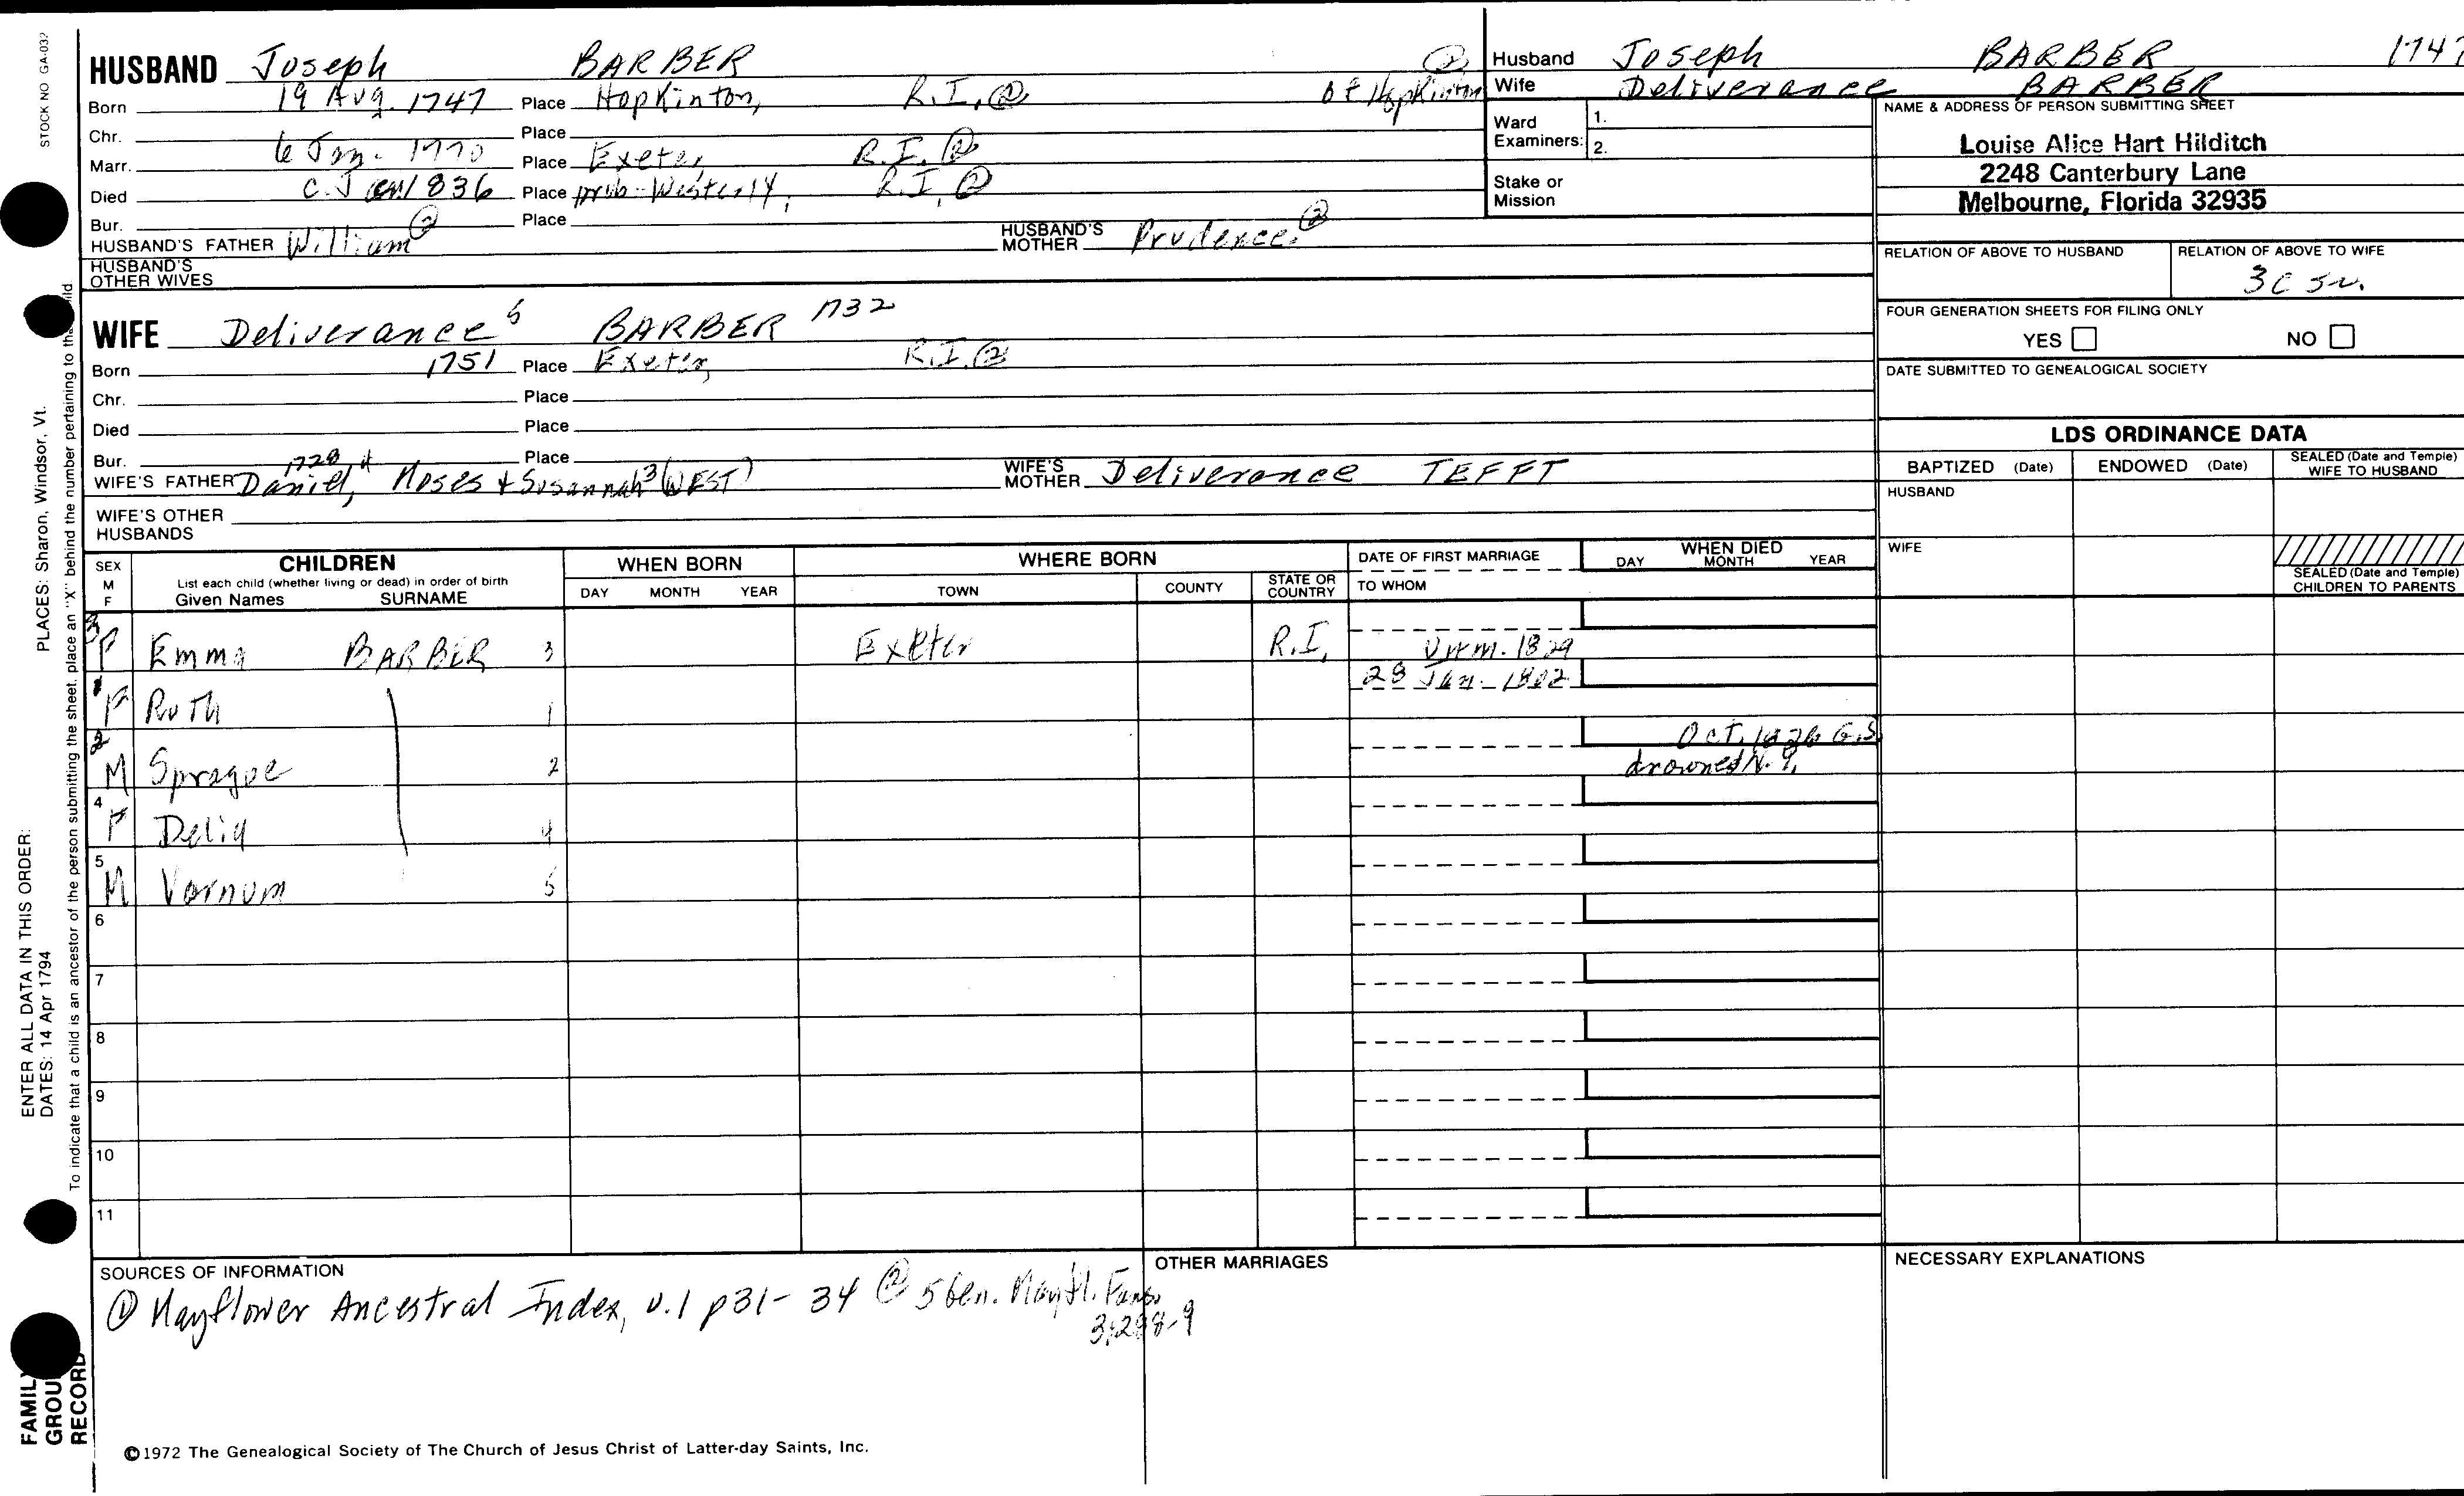 STOCK NO GA-032
HUSBAND Joseph BARBER ②
Born 19 Aug. 1747 Place Hopkinton, R.I. ② of Hopkinton
Chr. Place
Marr. 6 Jan. 1770 Place Exeter, R.I. ②
Died c. Jan 1836 Place prob. Westerly, R.I. ②
Bur. Place
HUSBAND'S FATHER William ② HUSBAND'S MOTHER Prudence. ②
HUSBAND'S OTHER WIVES
WIFE Deliverance 5 BARBER 1732
Born 1751 Place Exeter, R.I. ②
Chr. Place
Died Place
Bur. Place
WIFE'S FATHER Daniel, 1728 4 Moses + Susannah 3 (WEST) WIFE'S MOTHER Deliverance TEFFT
WIFE'S OTHER HUSBANDS
Husband Joseph BARBER 1747
Wife Deliverance BARBER
Ward Examiners: 1.
2.
Stake or Mission
NAME & ADDRESS OF PERSON SUBMITTING SHEET
Louise Alice Hart Hilditch
2248 Canterbury Lane
Melbourne, Florida 32935
RELATION OF ABOVE TO HUSBAND RELATION OF ABOVE TO WIFE
3C 5r.
FOUR GENERATION SHEETS FOR FILING ONLY
YES NO
DATE SUBMITTED TO GENEALOGICAL SOCIETY
LDS ORDINANCE DATA
BAPTIZED (Date) ENDOWED (Date) SEALED (Date and Temple) WIFE TO HUSBAND
HUSBAND
WIFE
SEALED (Date and Temple) CHILDREN TO PARENTS
SEX M F
CHILDREN
List each child (whether living or dead) in order of birth
Given Names SURNAME
WHEN BORN
DAY MONTH YEAR
WHERE BORN
TOWN COUNTY STATE OR COUNTRY
DATE OF FIRST MARRIAGE
TO WHOM
WHEN DIED
DAY MONTH YEAR
3 F Emma BARBER 3 Exeter R.I. Unm. 1829
1 F Ruth 1 28 Jan. 1802
2 M Sprague 2 Oct. 1826 G.S. drowned N.Y.
4 F Delia 4
5 M Varnum 5
6
7
8
9
10
11
SOURCES OF INFORMATION
① Mayflower Ancestral Index, v.1 p31-34 ② 5 Gen. Mayfl. Fams
3:288-9
OTHER MARRIAGES
NECESSARY EXPLANATIONS
©1972 The Genealogical Society of The Church of Jesus Christ of Latter-day Saints, Inc.
ENTER ALL DATA IN THIS ORDER:
DATES: 14 Apr 1794
PLACES: Sharon, Windsor, Vt.
To indicate that a child is an ancestor of the person submitting the sheet, place an "X" behind the number pertaining to that child
FAMILY
GROUP
RECORD